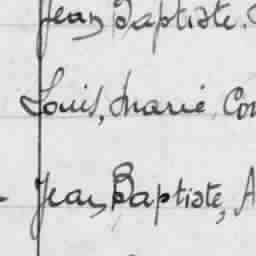 Jean Baptiste.
Louis, Marie, Con
Jean Baptiste, A